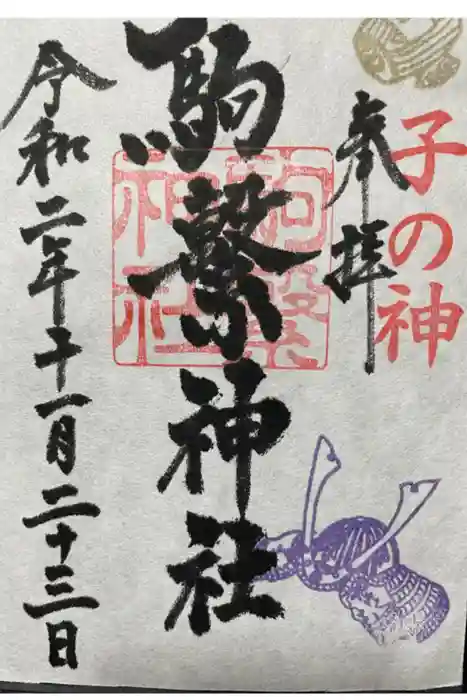 子の神
参拝
駒繋神社
駒繋
神社
令和二年十一月二十三日